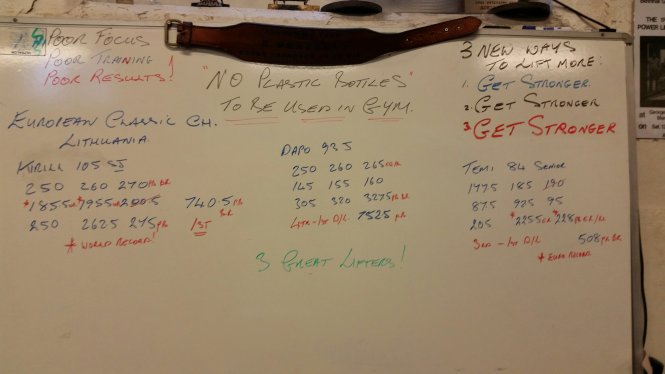 POOR FOCUS
POOR TRAINING
POOR RESULTS!
"NO PLASTIC BOTTLES"
TO BE USED IN GYM.
3 NEW WAYS
TO LIFT MORE:
1. GET STRONGER.
2. GET STRONGER
3. GET STRONGER
EUROPEAN CLASSIC CH.
LITHUANIA.
KIRILL 105 SJ
250 260 270 PB BR
*185.5 *195.5 200.5
740.5 PB
BR
250 262.5 275 PB
1ST
* WORLD RECORD!
DAPO 93 S
250 260 265
145 155 160
305 320 327.5 PB BR
4TH - 1ST D/L 752.5 PB
TEMI 84 SENIOR
177.5 185 190
87.5 92.5 95
205 *225.5 *228 PB
3RD - 1ST D/L
508 PB BR
* EURO RECORD
3 GREAT LIFTERS!